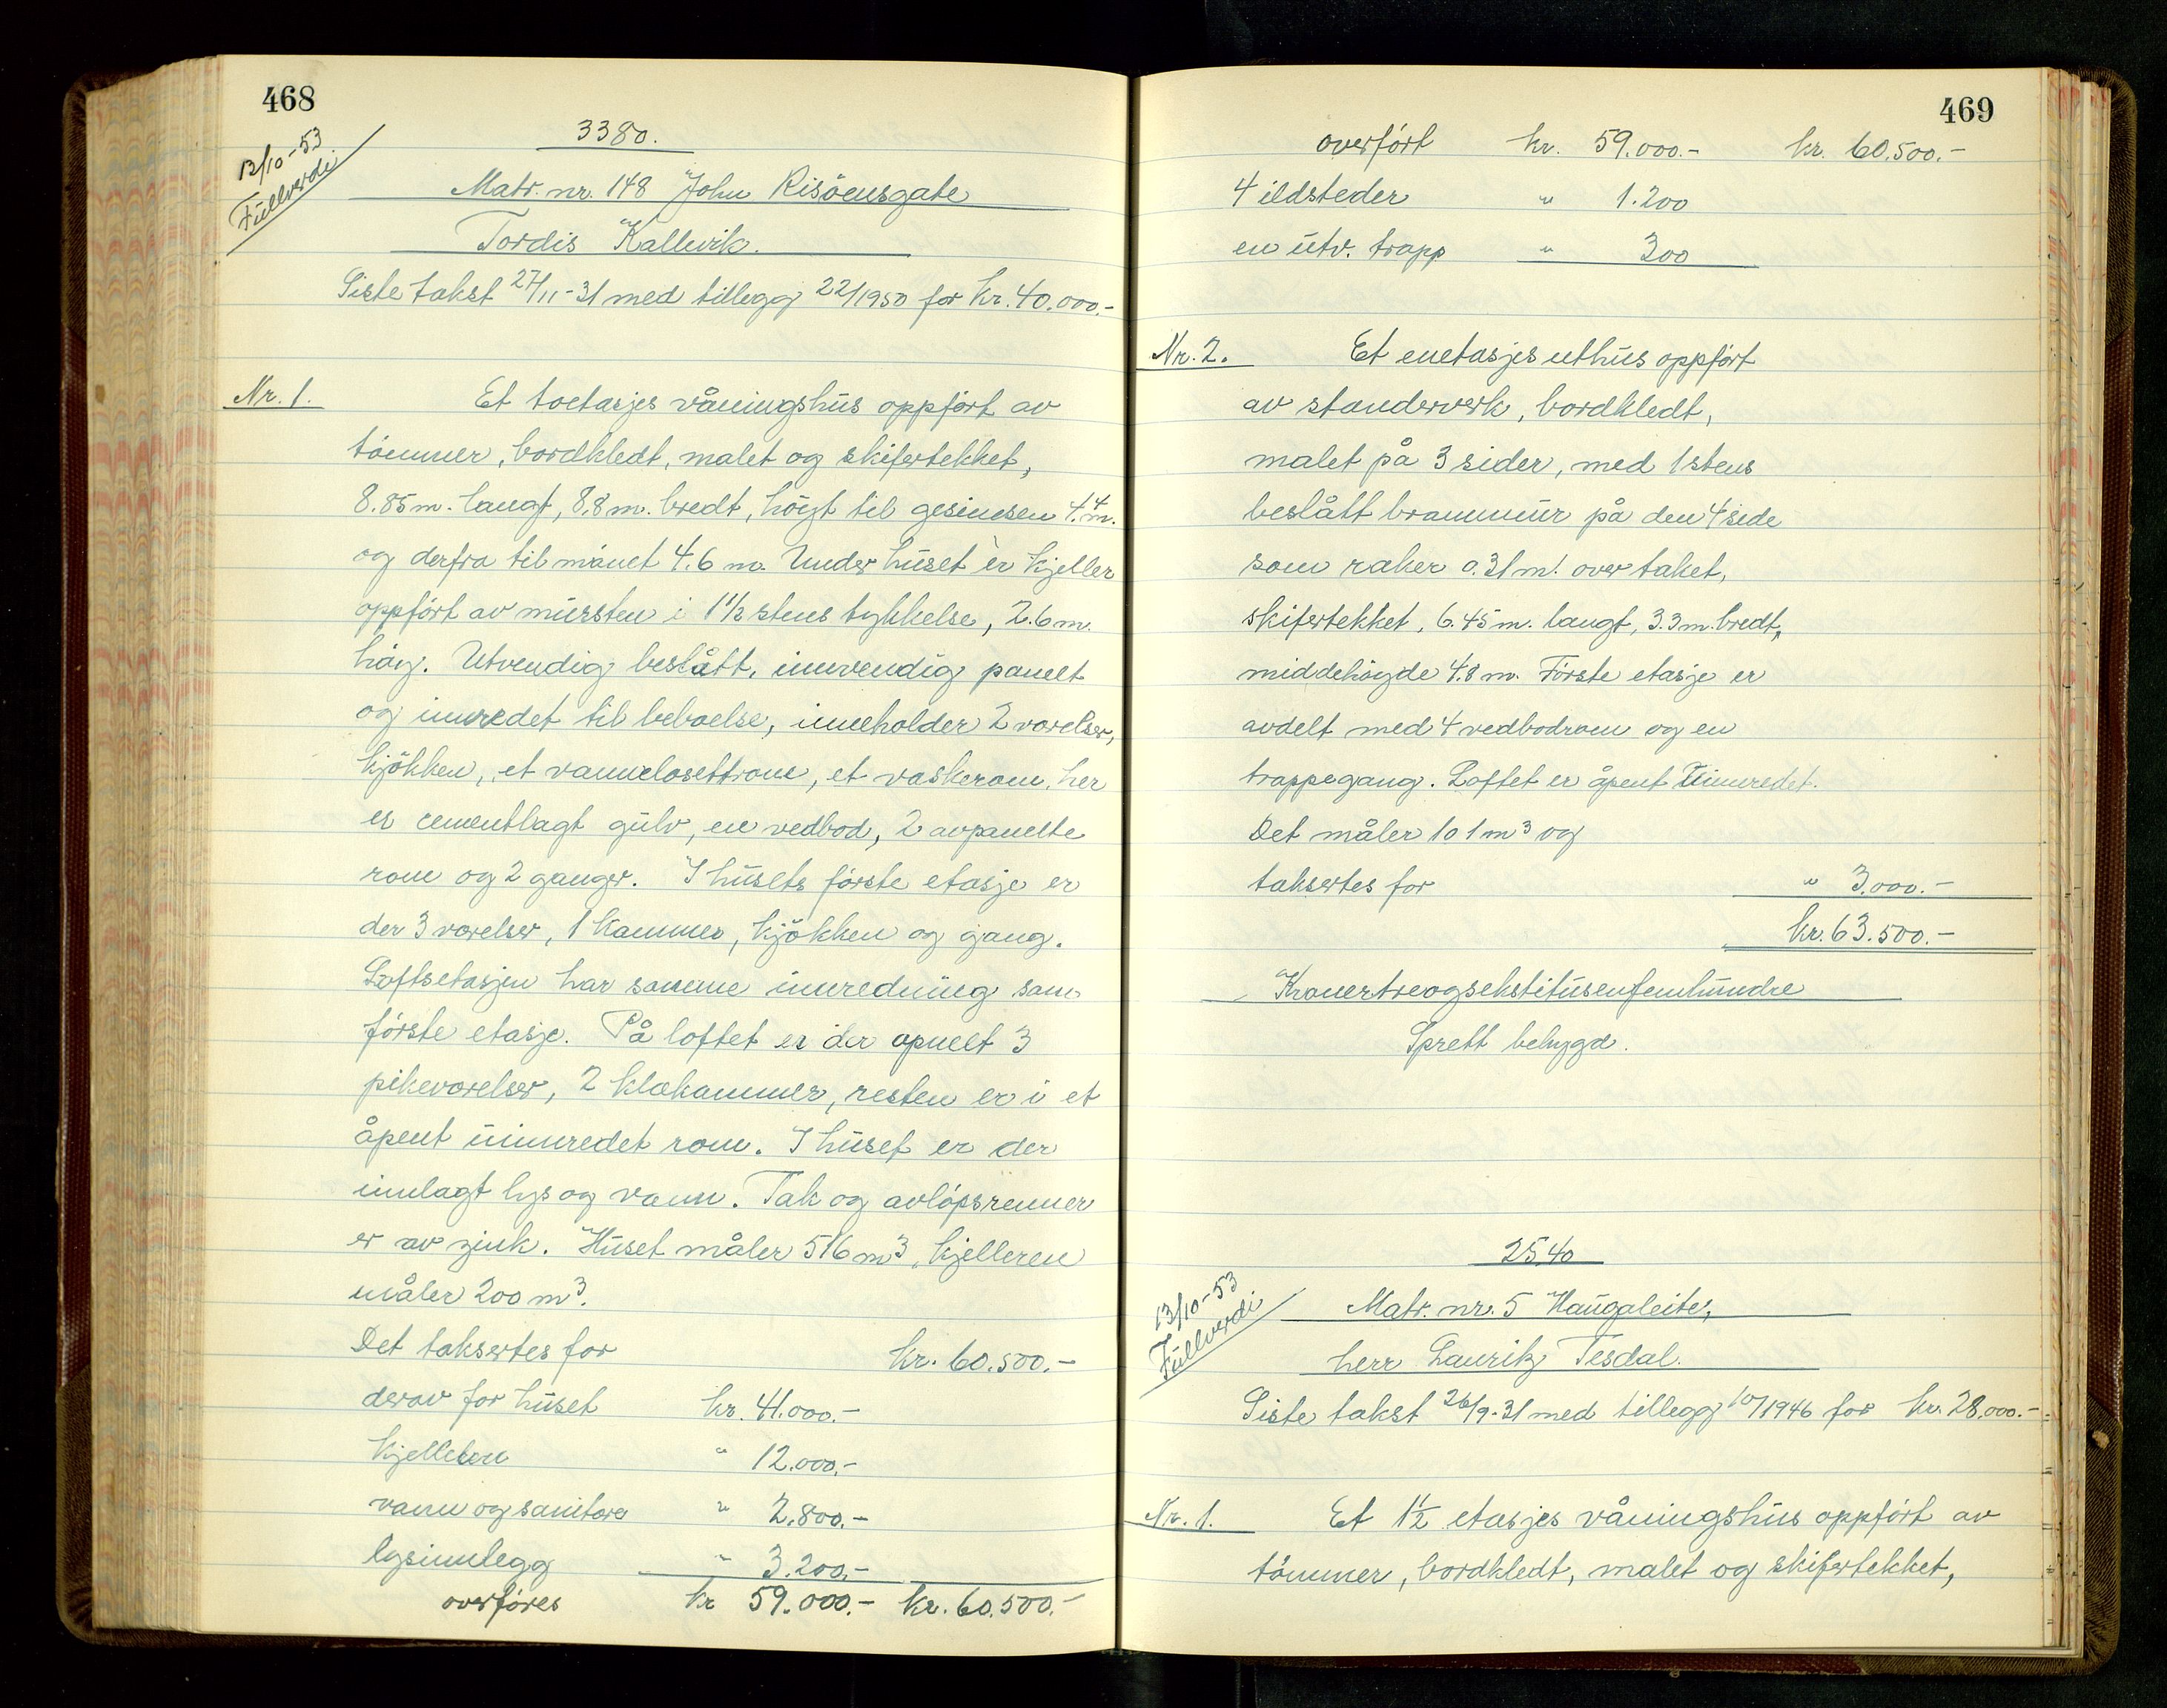 468
13/10-53
Fullverdi
3380.
Matr. nr. 148 John Risöensgate
Tordis Kallevik.
Siste takst 27/11-31 med tillegg 22/1950 for kr. 40.000.-
Nr. 1. Et toetasjes våningshus oppfört av
tömmer, bordkledt, malet og skifertekket,
8.85 m. langt, 8.8 m. bredt, höigt til gesimsen 4.4 m.
og derfra til mönet 4.6 m. Under huset er kjeller
oppfört av mursten i 1 1/2 stens tykkelse, 2.6 m.
höy. Utvendig beslått, innvendig panelt
og innredet til beboelse, inneholder 2 værelser,
kjökken, et vannclosettrom, et vaskerom, her
er cementlagt gulv, en vedbod, 2 avpanelte
rom og 2 ganger. I husets förste etasje er
der 3 værelser, 1 kammer, kjökken og gang.
Loftsetasjen har samme innredning som
förste etasje. På loftet er der apnelt 3
pikeværelser, 2 klækammer, resten er i et
åpent uinnredet rom. I huset er der
innlagt lys og vann. Tak og avlöpsrenner
er av zink. Huset måler 516 m3, kjelleren
måler 200 m3.
Det taksertes for kr. 60.500.-
derav for huset kr. 41.000.-
kjelleren " 12.000.-
vann og sanitære " 2.800.-
lysinnlegg " 3.200.-
overföres kr 59.000.- kr. 60.500.-
469
overfört kr. 59.000.- kr. 60.500.-
4 ildsteder " 1.200
en utv. trapp " 300
Nr. 2. Et enetasjes uthus oppfört
av standerverk, bordkledt,
malet på 3 sider, med 1 stens
beslått brannmur på den 4 side
som raker 0.31 m. over taket,
skifertekket, 6.45 m. langt, 3.3 m. bredt,
middehöyde 4.8 m. Förste etasje er
avdelt med 4 vedbodrom og en
trappegang. Loftet er åpent uinnredet.
Det måler 101 m3 og
taksertes for " 3.000.-
kr. 63.500.-
Kronertreogsekstitusenfemhundre
Sprett bebygd.
2540
13/10-53
Fullverdi
Matr. nr. 5 Haugaleite,
herr Laurik Tesdal.
Siste takst 26/9-31 med tillegg 10/1946 for kr. 28.000.-
Nr. 1. Et 1 1/2 etasjes våningshus oppfört av
tömmer, bordkledt, malet og skifertekket,